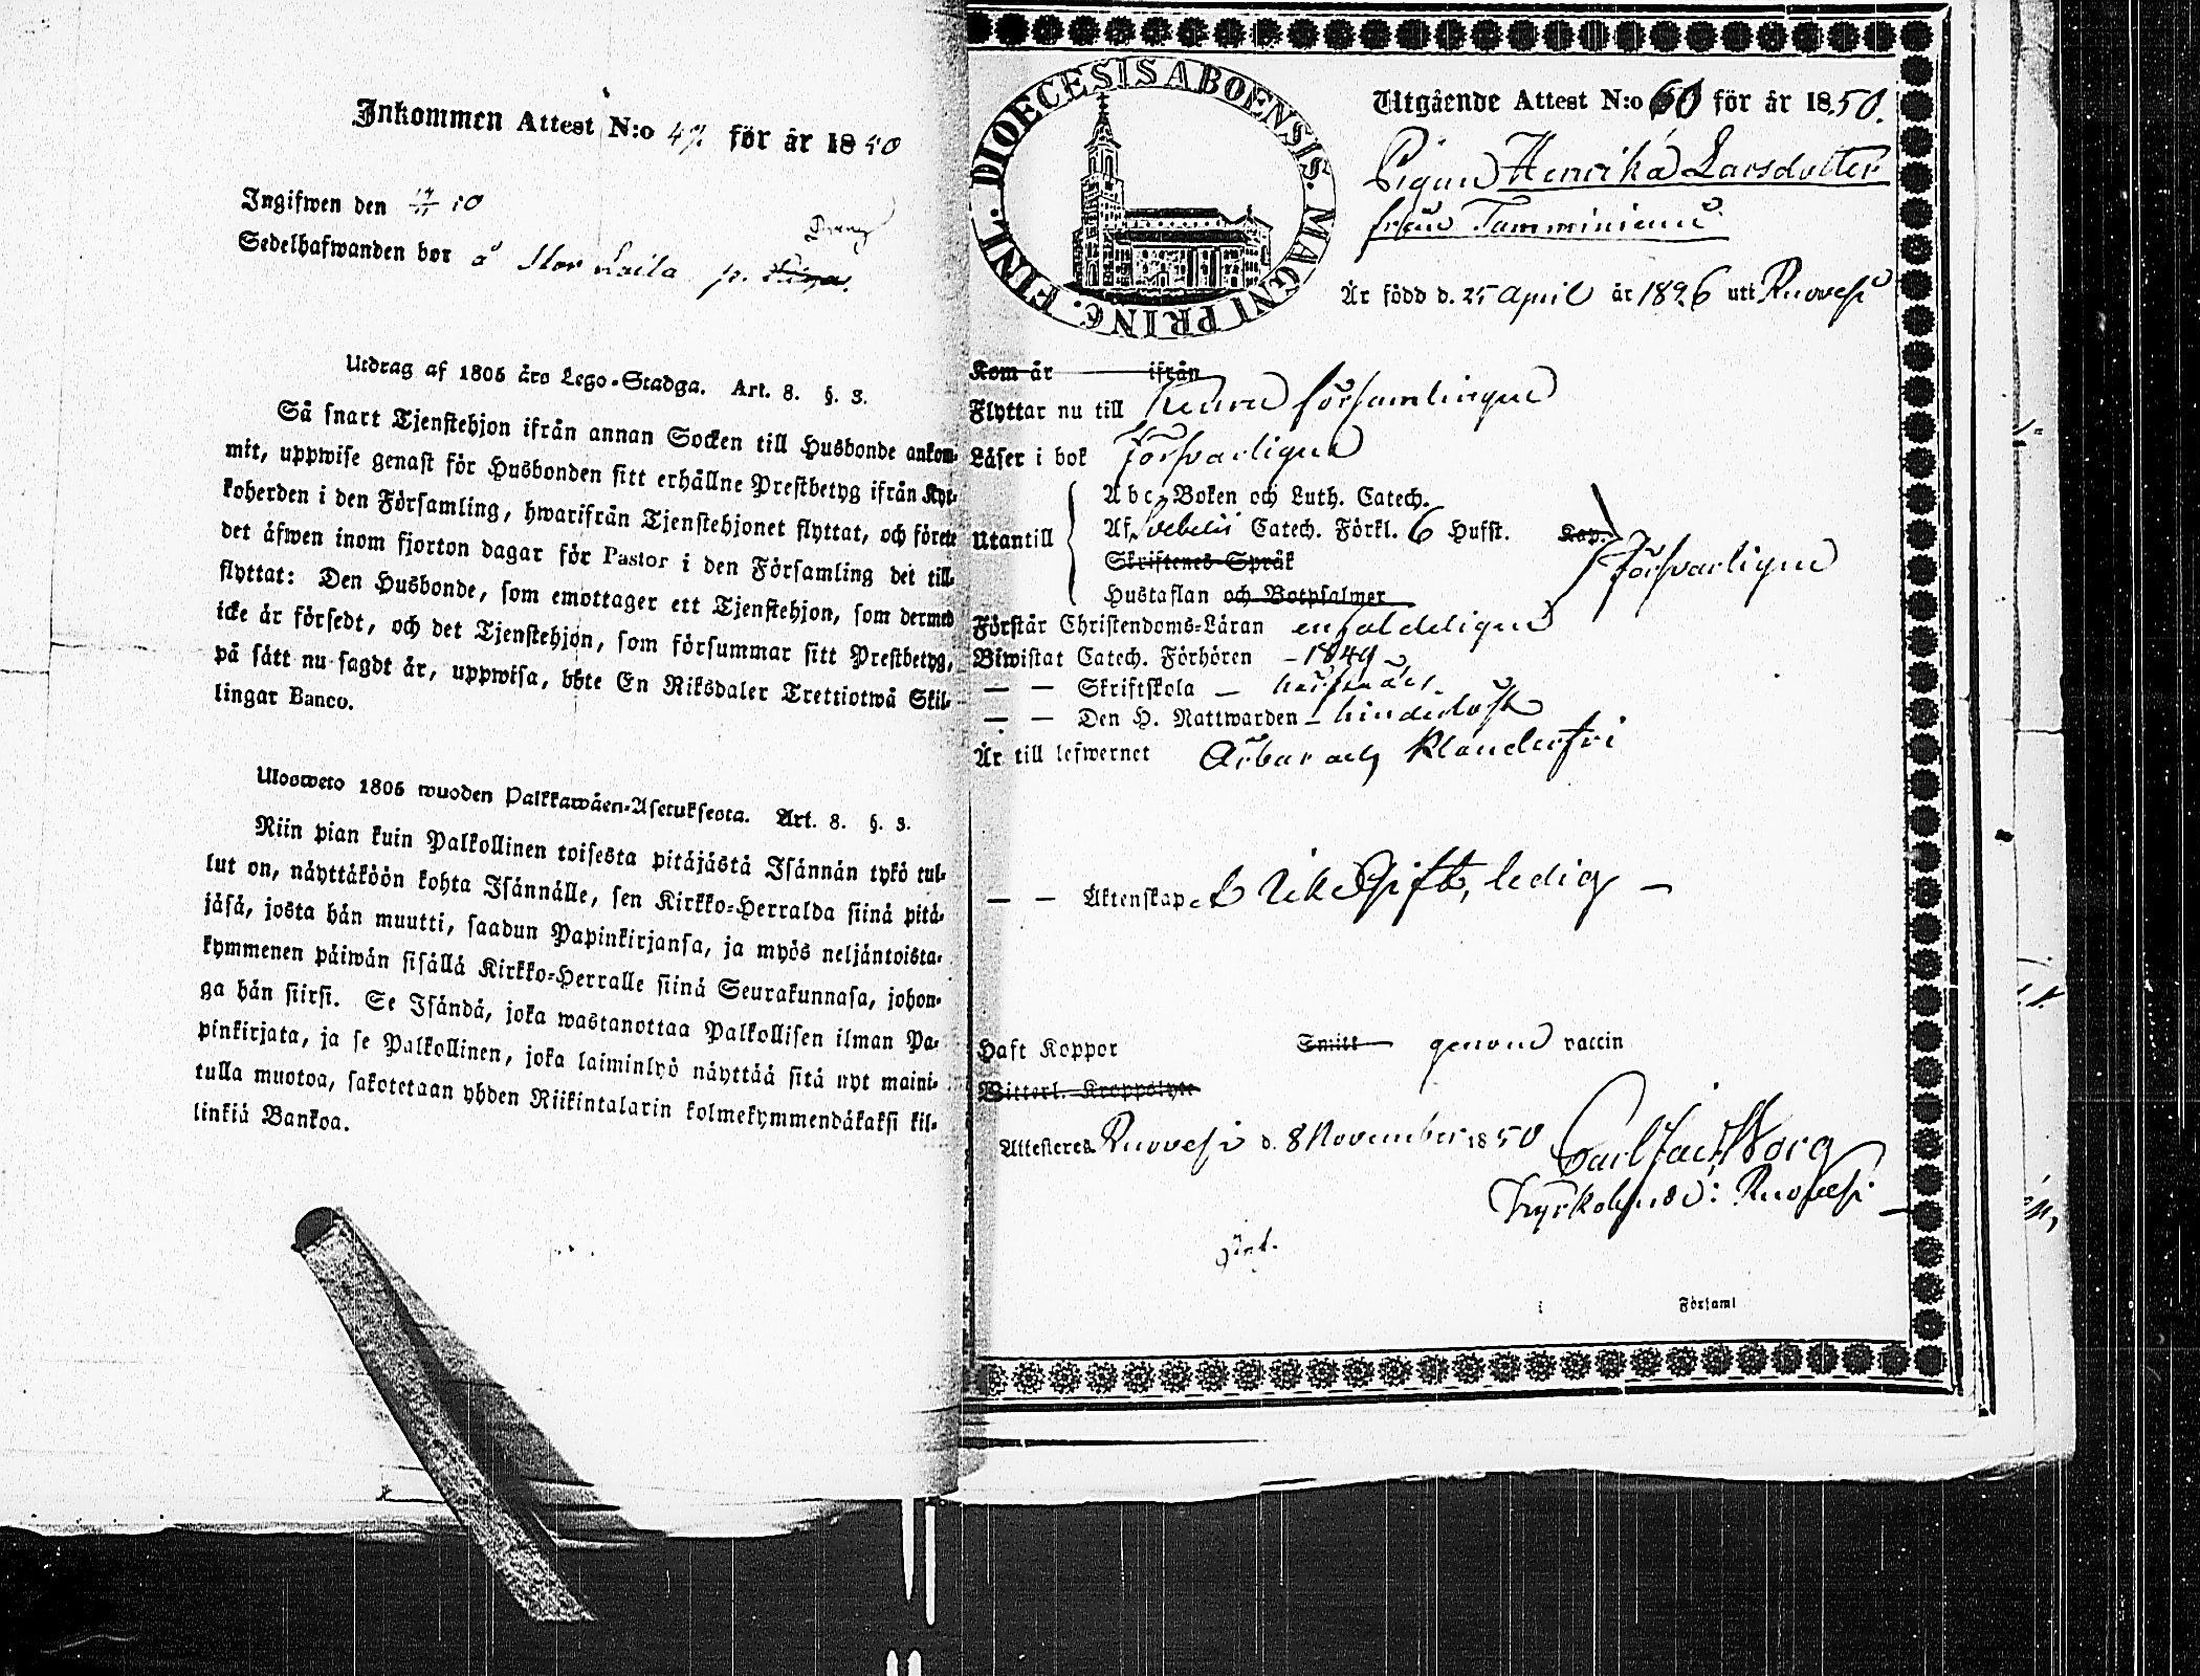 Inkommen Attest N:o 47. för år 1850
Ingifwen den 17/11 50
Dräng
Sedelhafwanden bor å Stor Laila p.
Utdrag af 1805 års Lego-Stadga. Art. 8. §. 3.
Så snart Tjenstehjon ifrån annan Socken till Husbonde ankom-
mit, uppwise genast för Husbonden sitt erhållne Prestbetyg ifrån Kyr-
koherden i den Församling, hwarifrån Tjenstehjonet flyttat, och förete
det äfwen inom fjorton dagar för Pastor i den Församling det till-
flyttat: Den Husbonde, som emottager ett Tjenstehjon, som dermed
icke är försedt, och det Tjenstehjon, som försummar sitt Prestbetyg,
på sätt nu sagdt är, uppwisa, böte En Riksdaler Trettiotwå Skil-
lingar Banco.
Ulosweto 1805 wuoden Palkkawäen-Asetuksesta. Art. 8. §. 3.
Niin pian kuin Palkollinen toisesta pitäjästä Isännän tykö tul-
lut on, näyttäköön kohta Isännälle, sen Kirkko-Herralda siinä pitä-
jäsä, josta hän muutti, saadun Papinkirjansa, ja myös neljäntoista-
kymmenen päiwän sisällä Kirkko-Herralle siinä Seurakunnasa, johon-
ga hän siirsi. Se Isändä, joka wastanottaa Palkollisen ilman Pa-
pinkirjata, ja se Palkollinen, joka laiminlyö näyttää sitä nyt maini-
tulla muotoa, sakotetaan yhden Riikintalarin kolmekymmendäkaksi kil-
linkiä Bankoa.
DIOECESIS ABOENSIS. MAGNI PRINC. FINL.
Utgående Attest N:o 60 för år 1850.
Pigan Henrika Larsdotter
från Tamminiemi
Är född d. 25 April år 1826 uti Ruovesi
Kom år ifrån
Flyttar nu till Keuru församlingen
Läser i bok försvarligen
Utantill
Abc-Boken och Luth. Catech.
Af Svebelii Catech. Förkl. 6 Hufst. Kap.
Skriftenes Språk
Hustaflan och Botpsalmer
försvarligen
Förstår Christendoms-Läran enfaldeligen
Biwistat Catech. Förhören - 1849
— — Skriftskola —
— — Den H. Nattwarden - hinderlöst
Är till lefwernet Ärbar och Klanderfri
— — Äktenskap Gift, ledig —
Haft Koppor Smitt genom vaccin
Witterl. Kroppslyte
Attesteras Ruovesi d. 8 November 1850
Kyrkoherde i Ruovesi
i Församl